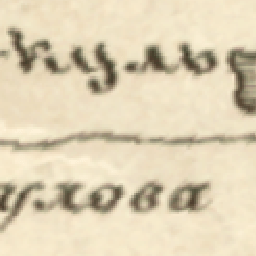 -куль
аулова